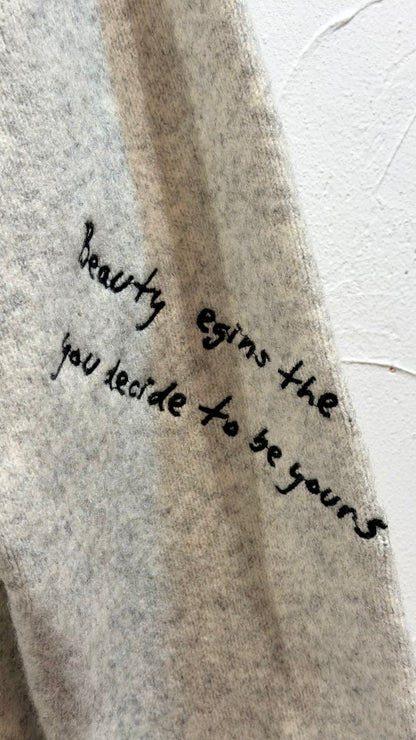 Beauty egins the
you decide to be yours